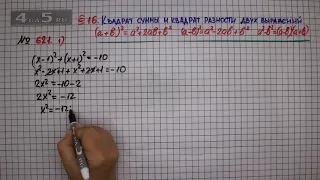 § 16. Квадрат суммы и квадрат разности двух выражений
(a+b)²=a²+2ab+b² (a-b)²=a²-2ab+b² a²-b²=(a-b)(a+b)
№ 621. 1)
(x-1)²+(x+1)²=-10
x²-2x+1+x²+2x+1=-10
2x²=-10-2
2x²=-12
x²=-12: